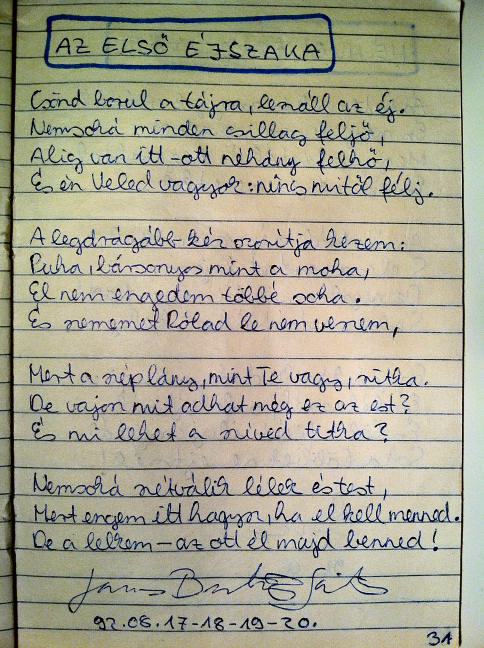 AZ ELSŐ ÉJSZAKA
Csönd borul a tájra, leszáll az éj.
Nemsoká minden csillag feljő,
Alig van itt-ott néhány felhő,
És én Veled vagyok: nincs mitől félj.
A legdrágább kéz szorítja kezem:
Puha, bársonyos mint a moha,
El nem engedem többé soha.
És szememet Rólad le nem veszem,
Mert a szép lány, mint Te vagy, ritka.
De vajon mit adhat még ez az est?
És mi lehet a szíved titka?
Nemsoká szétválik lélek és test,
Mert engem itt hagysz, ha el kell menned.
De a lelkem - az ott él majd benned!
92.06.17-18-19-20.
31